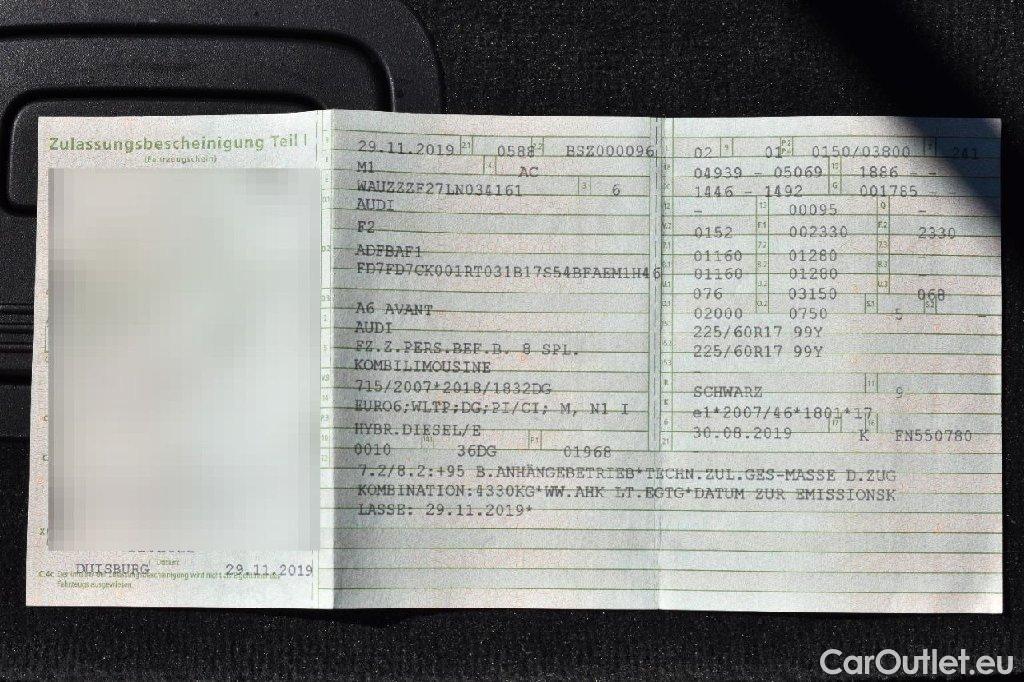 Zulassungsbescheinigung Teil I
(Fahrzeugschein)
DUISBURG 29.11.2019
Fahrzeugs ausgewiesen.
29.11.2019 2.1 0588 2.2 BSZ000096
M1 AC
WAUZZZF27LN034161 3 6
AUDI
F2
ADFBAF1
FD7FD7CK001RT031B17S54BFAEM1H46
A6 AVANT
AUDI
FZ.Z.PERS.BEF.B. 8 SPL.
KOMBILIMOUSINE
715/2007*2018/1832DG
EURO6;WLTP;DG;PI/CI; M, N1 I
HYBR.DIESEL/E
0010 14.1 36DG P.1 01968
02 9 01 0150/03800 241
04939 - 05069 1886 - -
1446 - 1492 G 001785 -
- 13 00095 Q -
0152 002330 2330
01160 01280
01160 01280
076 03150 068
02000 0750 S.1 5 S.2 -
225/60R17 99Y
225/60R17 99Y
-
SCHWARZ 11 9
e1*2007/46*1801*17
30.08.2019 17 K 16 FN550780
-
7.2/8.2:+95 B.ANHÄNGEBETRIEB*TECHN.ZUL.GES-MASSE D.ZUG
KOMBINATION:4330KG*WW.AHK LT.EGTG*DATUM ZUR EMISSIONSK
LASSE: 29.11.2019*
CarOutlet.eu